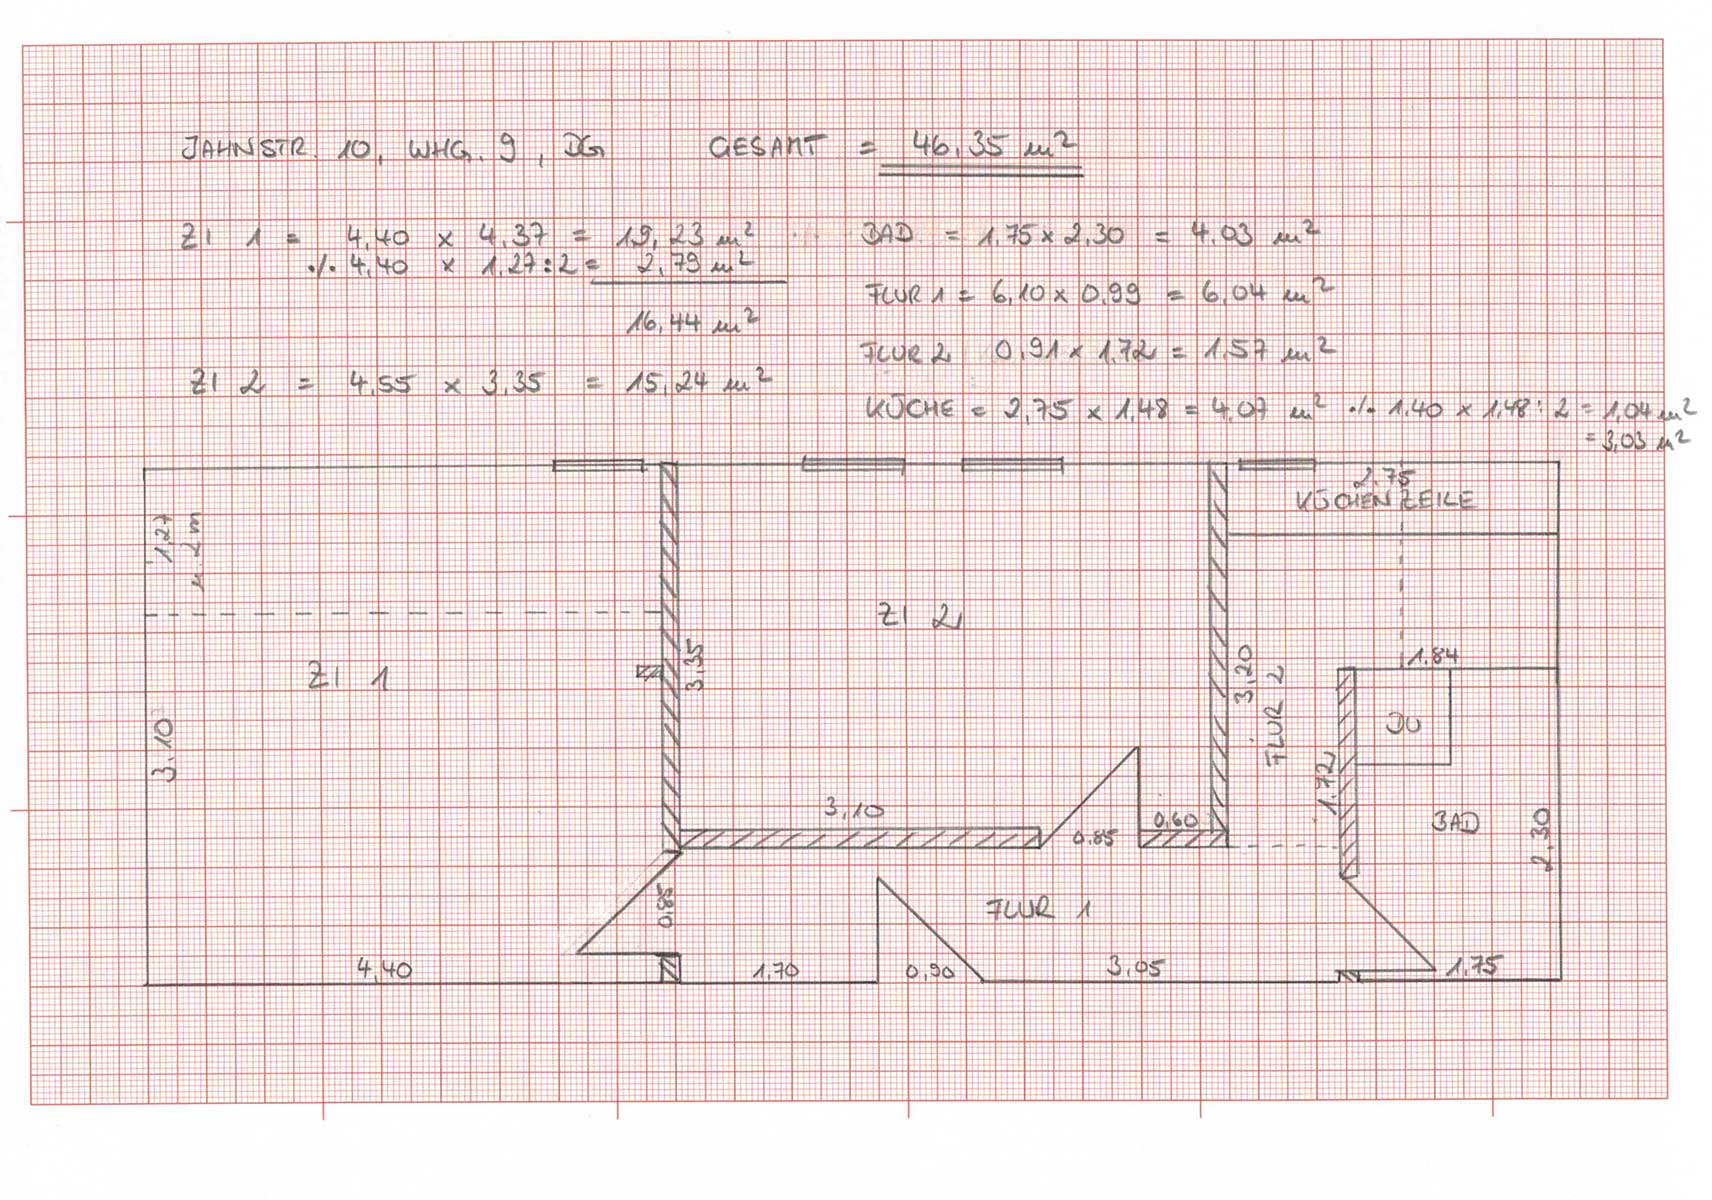 JAHNSTR. 10, WHG. 9, DG GESAMT = 46,35 m²
ZI 1 = 4,40 x 4,37 = 19,23 m²
./. 4,40 x 1,27:2 = 2,79 m²
16,44 m²
ZI 2 = 4,55 x 3,35 = 15,24 m²
BAD = 1,75 x 2,30 = 4,03 m²
FLUR 1 = 6,10 x 0,99 = 6,04 m²
FLUR 2 0,91 x 1,72 = 1,57 m²
KÜCHE = 2,75 x 1,48 = 4,07 m² ./. 1,40 x 1,48:2 = 1,04 m²
= 3,03 m²
2,75
KÜCHENZEILE
1,27
u. 2m
ZI 2
ZI 1
3,35
3,20
FLUR 2
1,84
DU
3,10
1,72
3,10
0,85
0,60
BAD
2,30
0,85
FLUR 1
4,40
1,70
0,90
3,05
1,75